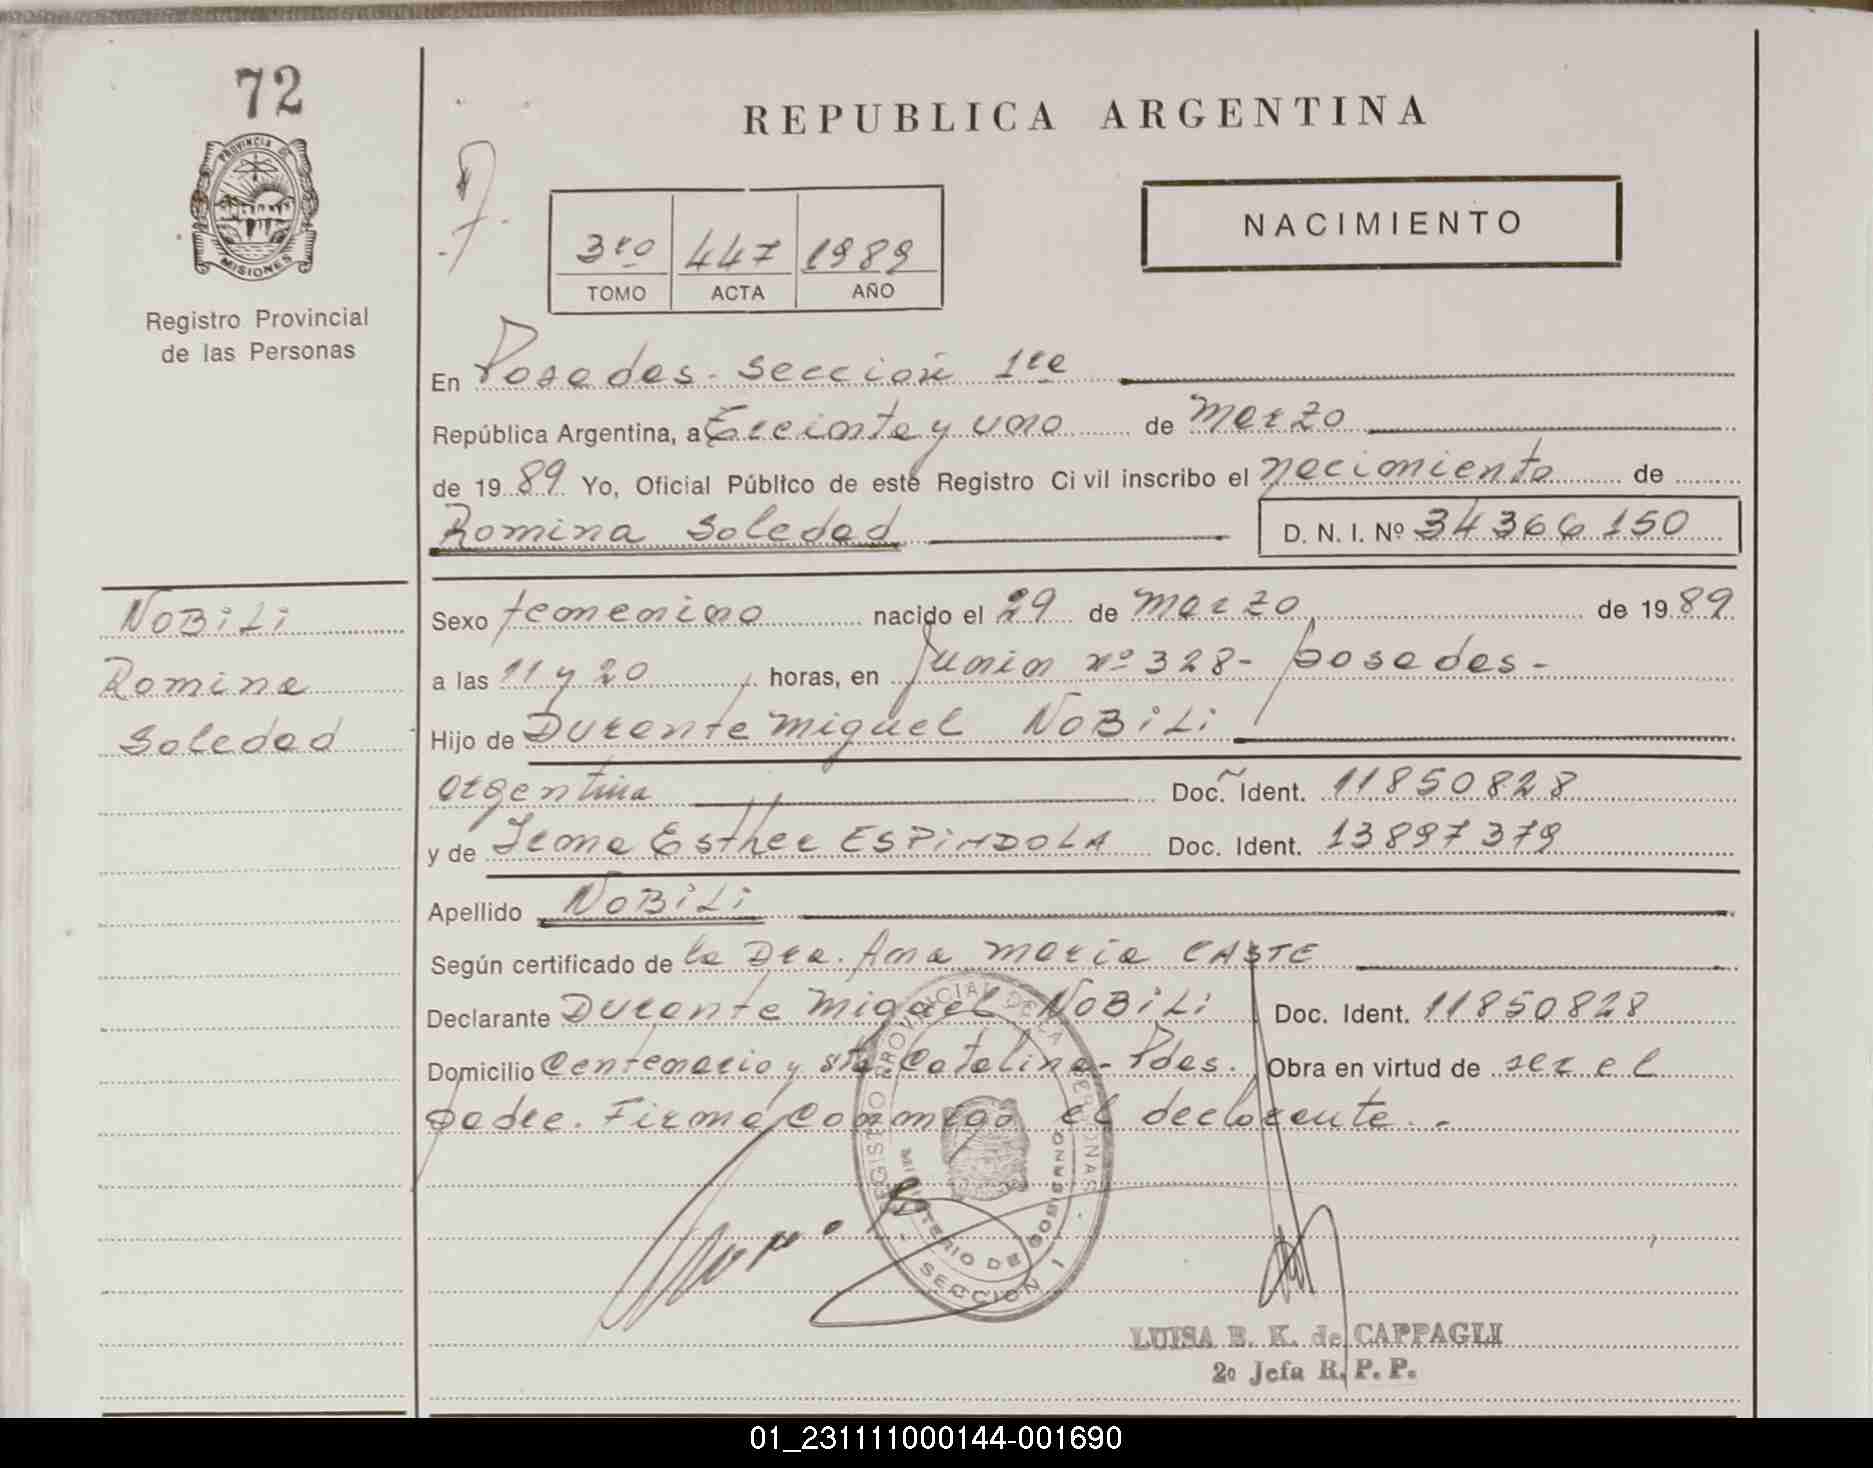 72
PROVINCIA DE
MISIONES
Registro Provincial
de las Personas
REPUBLICA ARGENTINA
NACIMIENTO
3ro 447 1989
TOMO ACTA AÑO
En Posadas - Sección 1ra
República Argentina, a Treinta y uno de Marzo
de 19 89 Yo, Oficial Público de este Registro Civil inscribo el nacimiento de
Romina Soledad D. N. I. Nº 34366150
NOBILI
Romina
Soledad
Sexo femenino nacido el 29 de Marzo de 19 89
a las 11 y 20 horas, en Junin nº 328 - posadas -
Hijo de Durante Miguel NOBILI
argentina Doc. Ident. 11850828
y de Irma Esther ESPINDOLA Doc. Ident. 13897379
Apellido NOBILI
Según certificado de la Dra. Ana María CASTE
Declarante Durante Miguel NOBILI Doc. Ident. 11850828
Domicilio Centenario y sta. Catalina - Pdas. Obra en virtud de ser el
padre. Firma conmigo el declarante. -
REGISTRO PROVINCIAL DE LA PERSONAS -
MINISTERIO DE GOBIERNO
- SECCION 1 -
LUISA E. K. de CAPPAGLI
2º Jefa R. P. P.
01_231111000144-001690